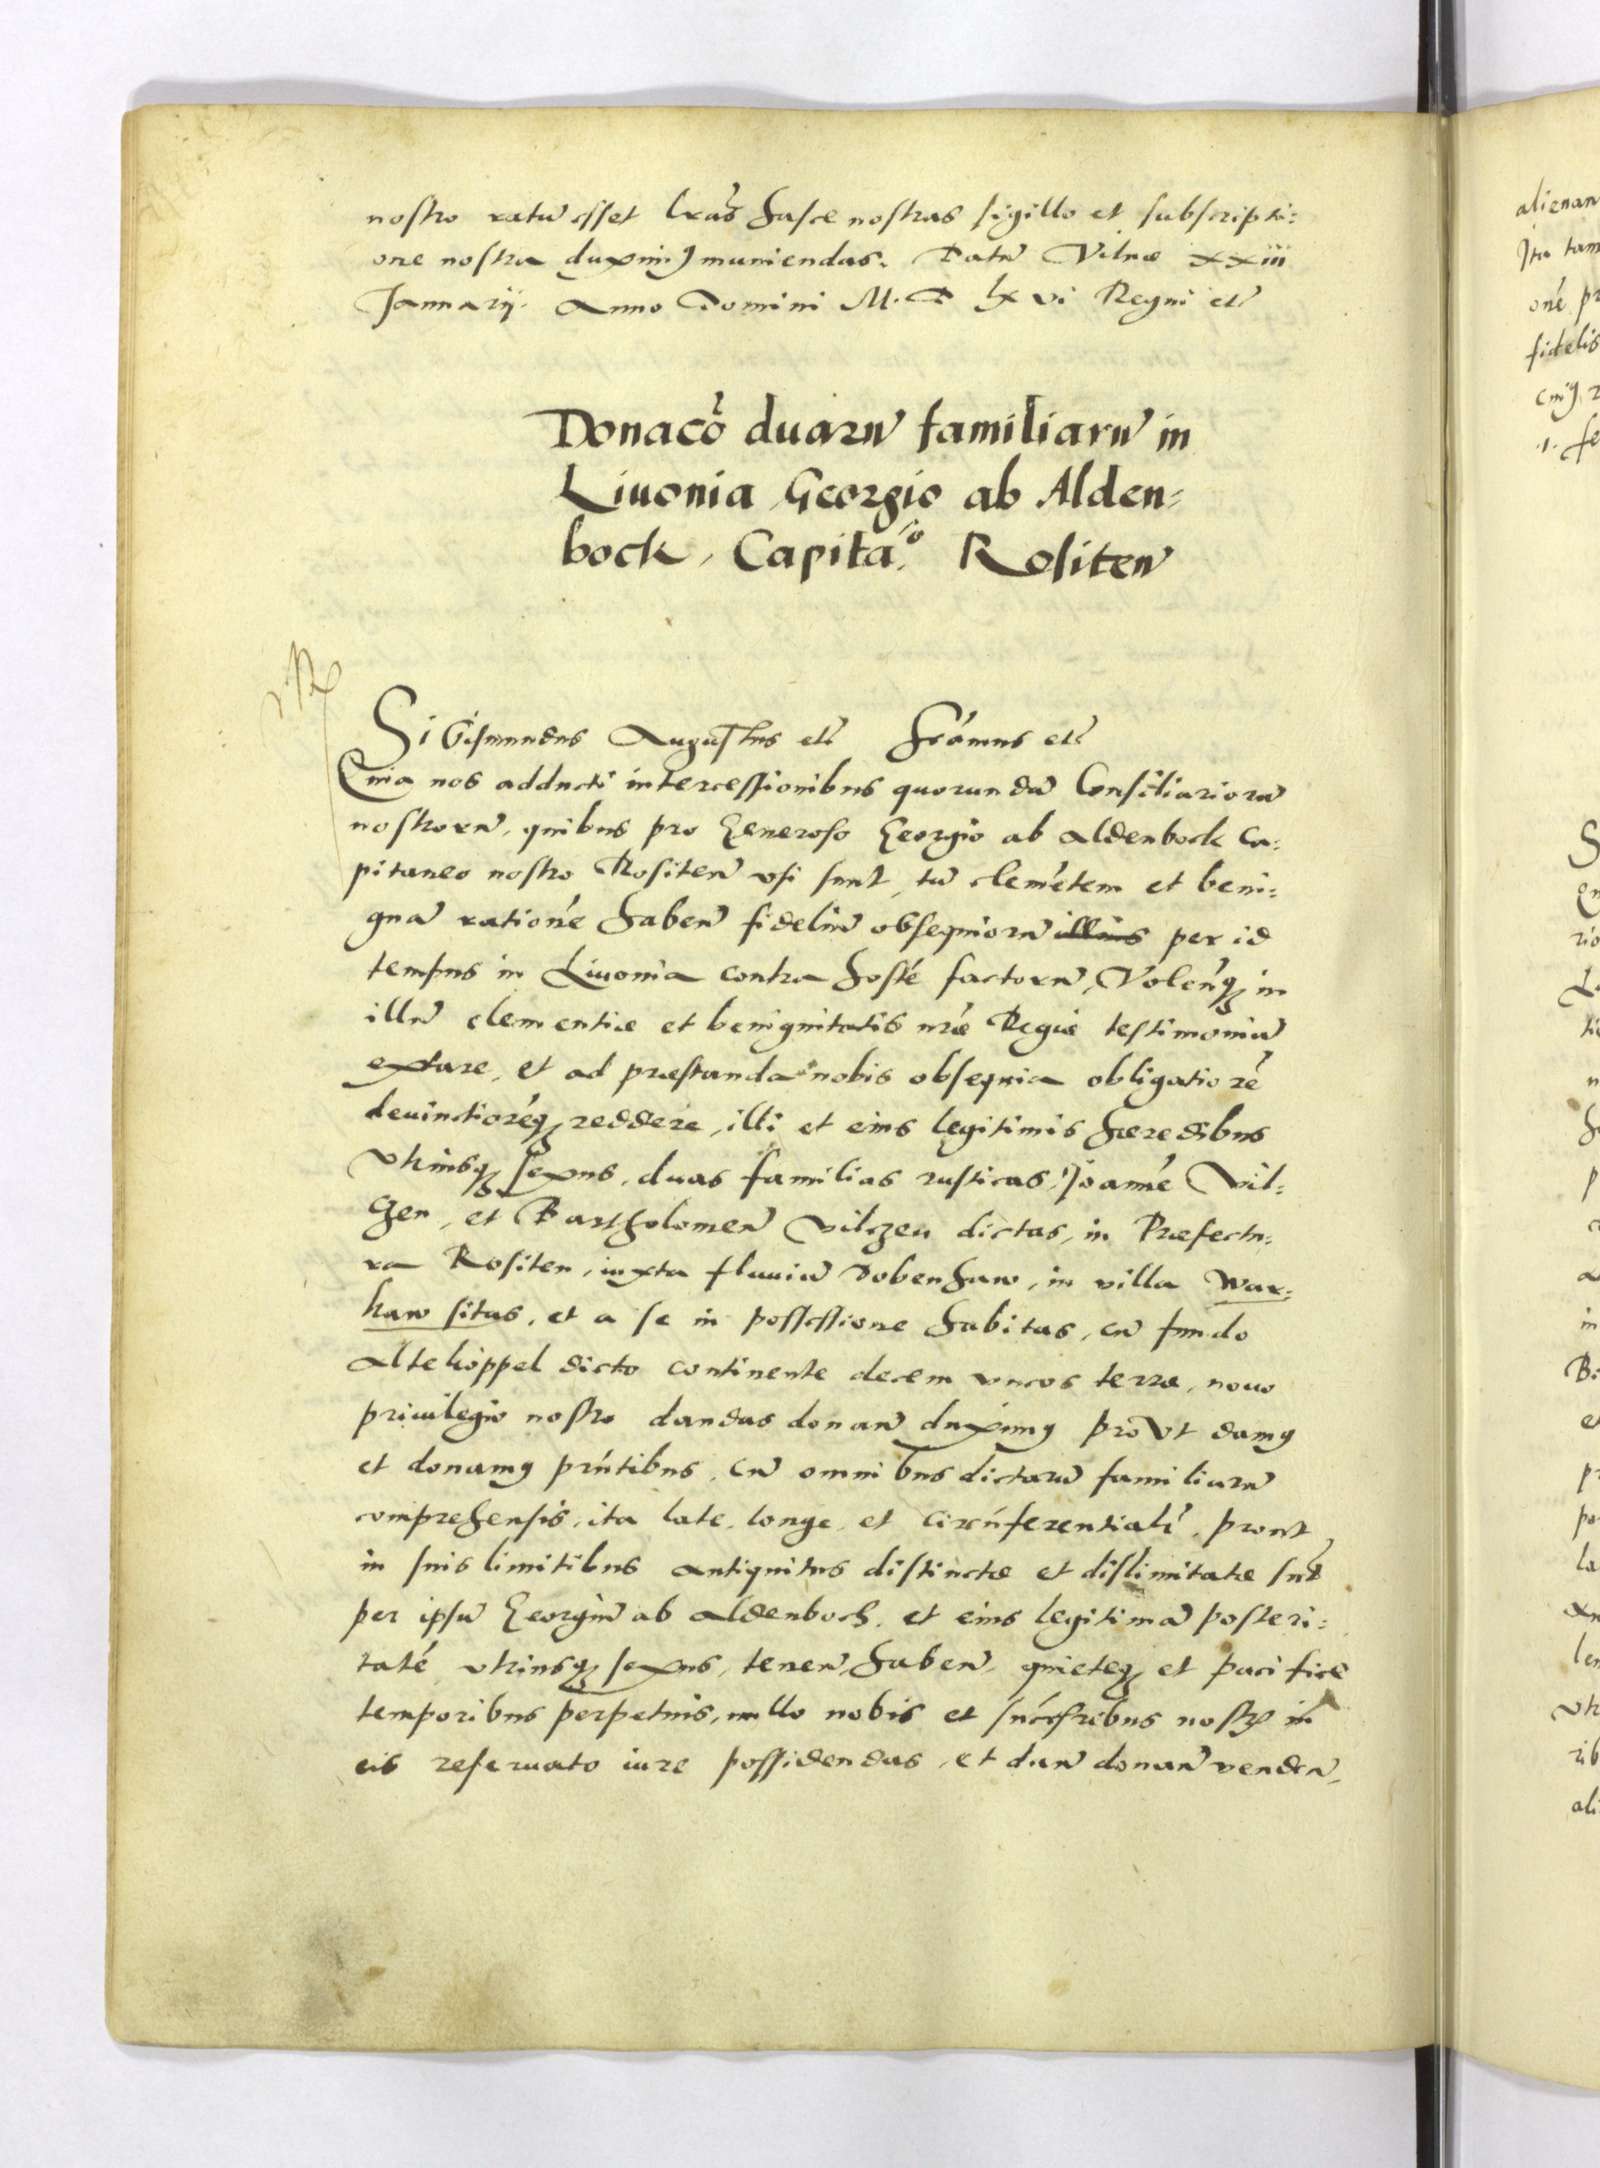 nostro ratū esset lrãs hasce nostras sigillo et subscripti:
one nostra duximꝰ muniendas. Datū Vilnæ xxiii
Januarij. Anno Domini M. D lxvi Regni etc̃
Donacõ duarū familiarū in
Liuonia Georgio ab Alden:
bock, Capita.º Rositeñ
Sigismundus Augustus etc̃ Significamus etc̃
Quia nos adducti intercessionibus quorundā Consiliariorū
nostrorū, quibus pro Generoso Georgio ab Aldenbock Ca:
pitaneo nostro Rositeñ vsi sunt, tū clemētem et beni:
gnā rationē habeñ fideliū obsequiorū illius per id
tempus in Liuonia contra hostē factorū, Voleñqꝫ in
illū clementiæ et benignitatis nr̃æ Regiæ testimoniū
extare, et ad præstanda nobis obsequia obligatiorē
deuinctiorēqꝫ reddere, illi et eius legitimis hæredibus
vtriusqꝫ sexus, duas familias rusticas, Joannē Vil:
gen, et Bartholomeū Vilgen dictas, in Præfectu:
ra Rositen, iuxta fluuiū Dobenhaw, in villa War:
kaw sitas, et a se in possessione habitas, cū fundo
Altehoppel dicto continente decem vncos terræ, nouo
priuilegio nostro dandas donañ duximꝰ prout damꝰ
et donamꝰ prñtibus, cū omnibus dictarū familiarū
comprehensis, ita late, longe, et circūferentialr̃, prout
in suis limitibus antiquitus distinctæ et dislimitatæ sũt
per ipsū Georgiū ab Aldenboch, et eius legitimā posteri:
tatē vtriusqꝫ sexus, teneñ, habeñ, quieteqꝫ et pacifice
temporibus perpetuis, nullo nobis et succēssoribus nostris in
eis reseruato iure possidendas, et dañ donañ vendeñ,
alienan
Ita tam
onē pr
fidelis